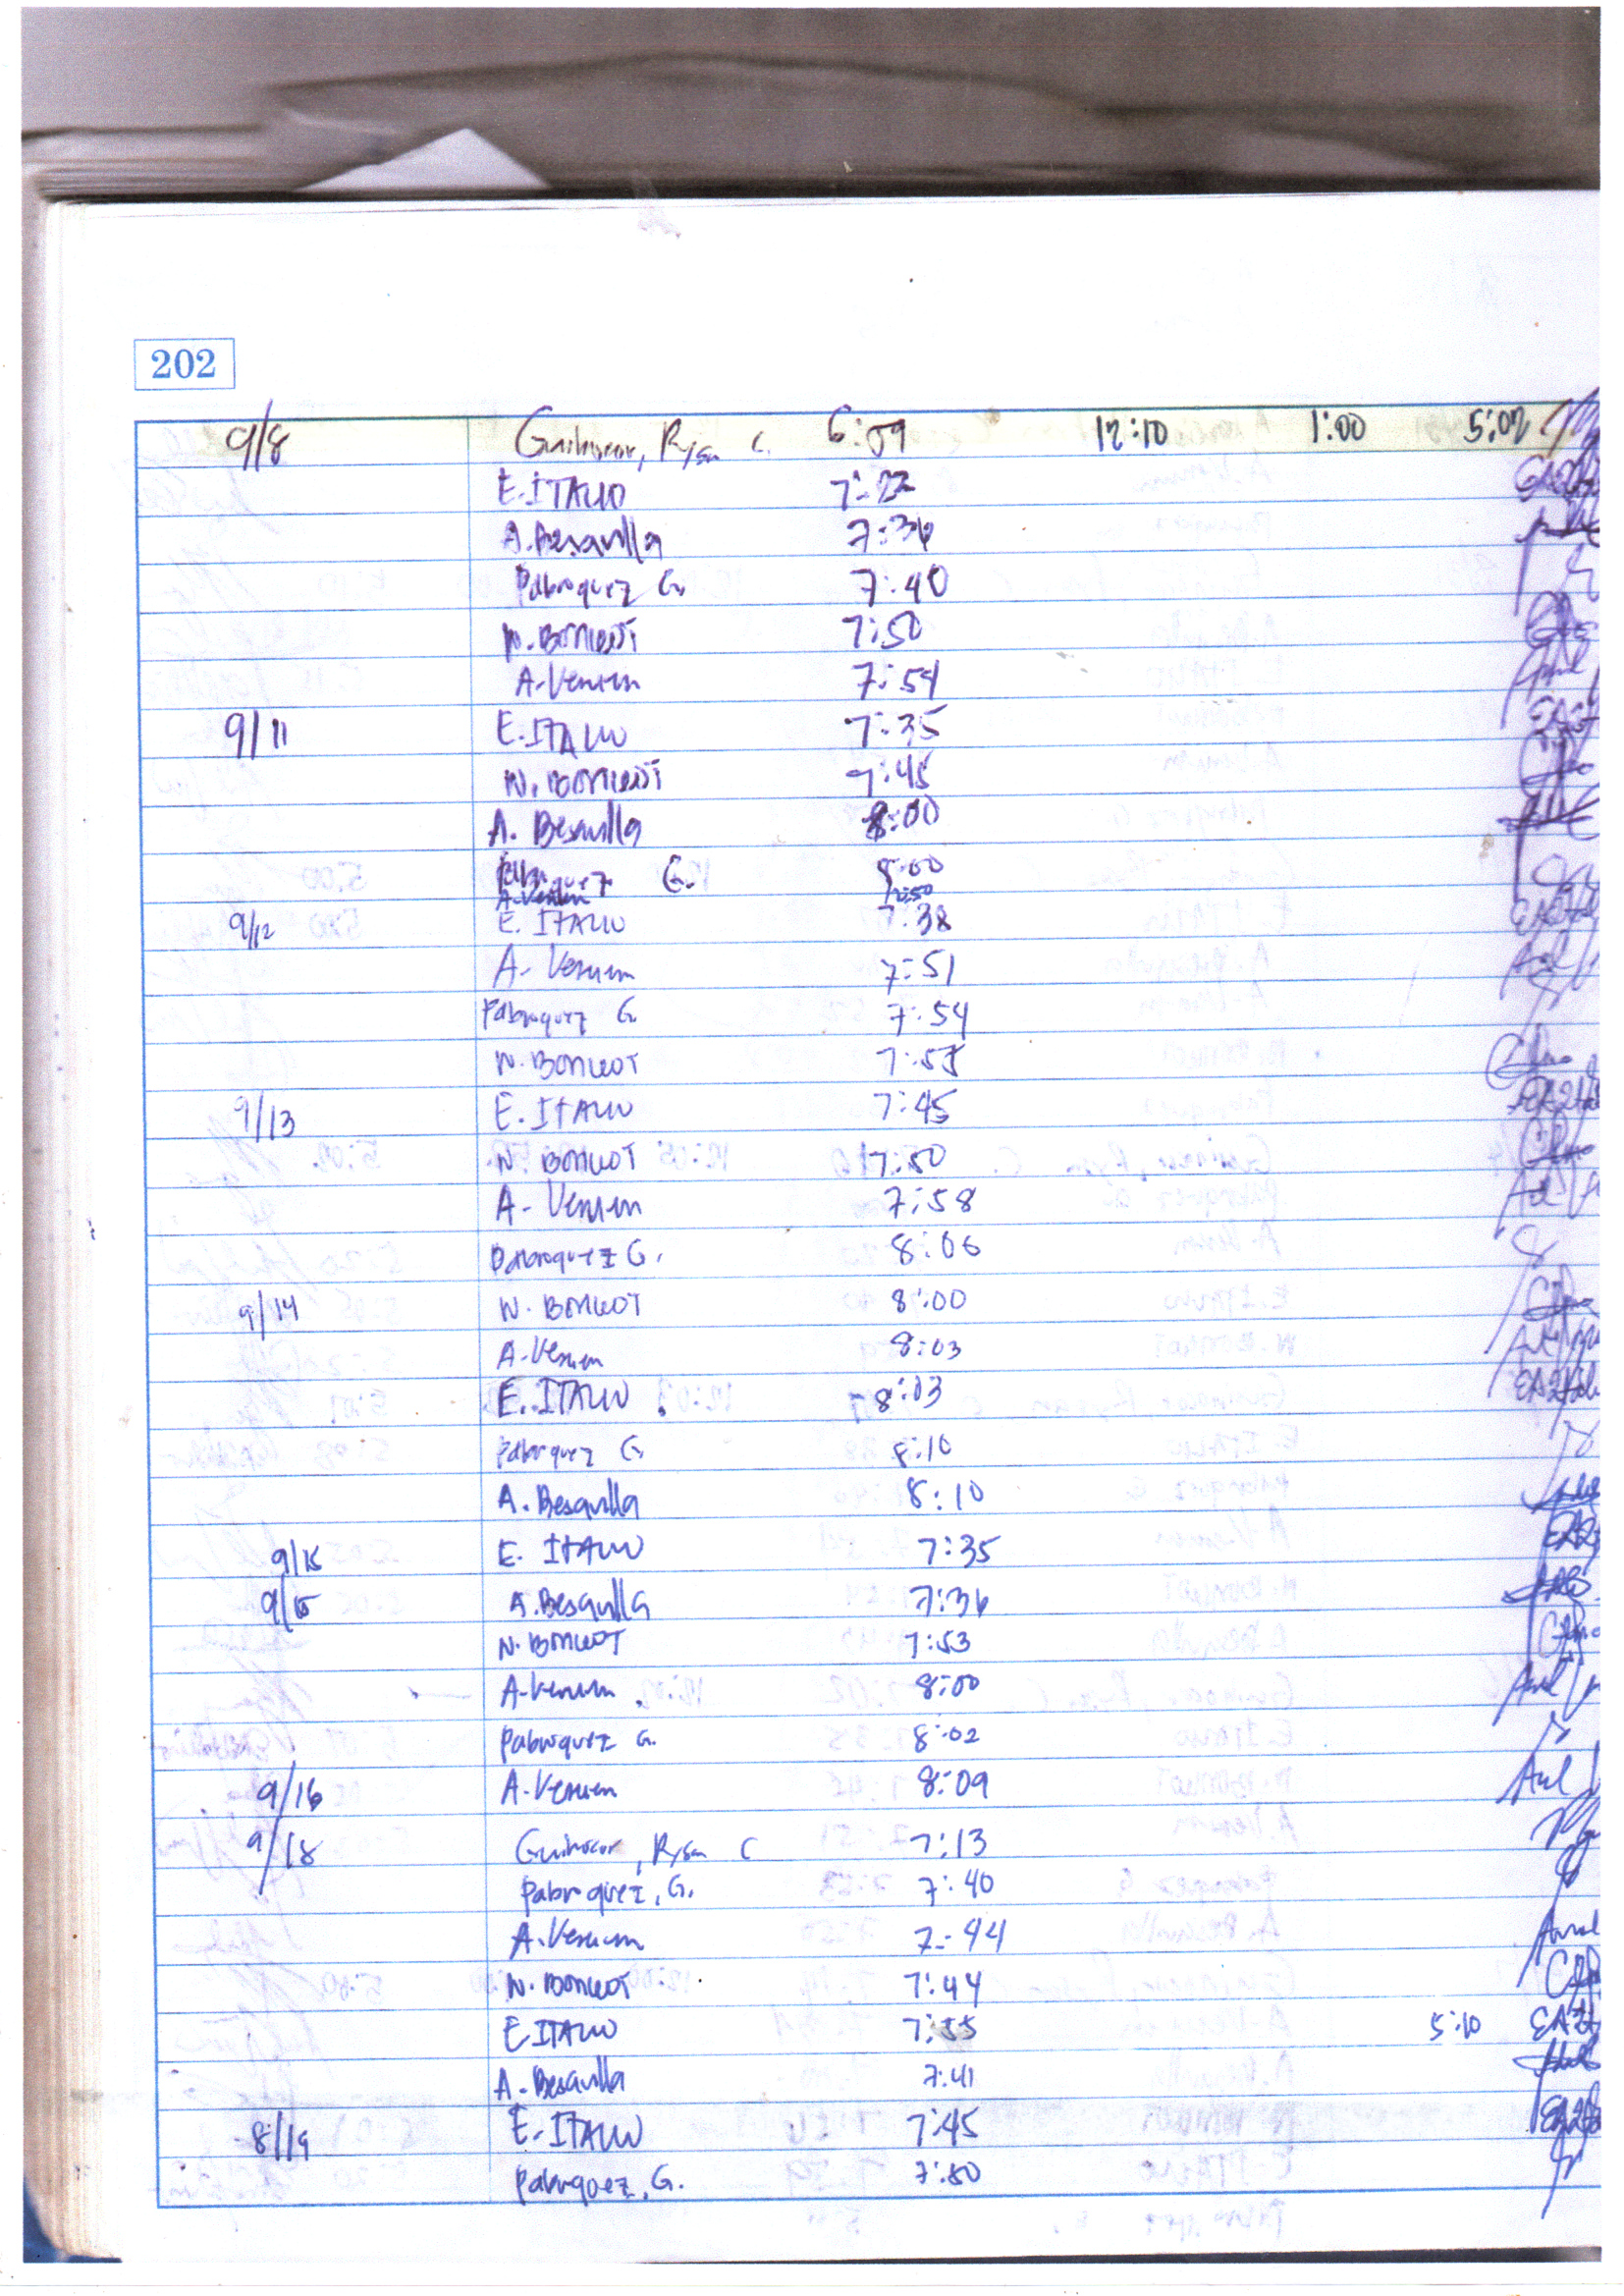 202
9/8 Guihocor, Ryan C. 6:59 12:10 1:00 5:02
E. ITALIO 7:22
A. Besavilla 7:36
Pabroquez G. 7:40
N. BONCOT 7:50
A. Verum 7:54
9/11 E. ITALIO 7:35
N. BONCOT 7:45
A. Besavilla 8:00
Pabroquez G. 8:00
A. Verum 7:50
9/12 E. ITALIO 7:38
A. Verum 7:51
Pabroquez G 7:54
N. BONCOT 7:55
9/13 E. ITALIO 7:45
N. BONCOT 7:50
A. Verum 7:58
Pabroquez G. 8:06
9/14 N. BONCOT 8:00
A. Verum 8:03
E. ITALIO 8:03
Pabroquez G 8:10
A. Besavilla 8:10
9/15 E. ITALIO 7:35
9/15 A. Besavilla 7:36
N. BONCOT 7:53
A. Verum 8:00
Pabroquez G. 8:02
9/16 A. Verum 8:09
9/18 Guihocor, Ryan C 7:13
Pabroquez, G. 7:40
A. Verum 7:44
N. BONCOT 7:44
E ITALIO 7:55 5:10
A. Besavilla 7:41
8/19 E. ITALIO 7:45
Pabroquez, G. 7:50